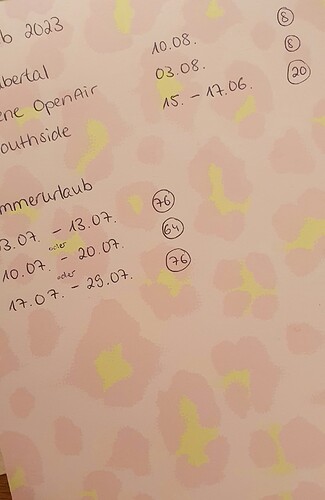 b 2023 8
bertal 10.08. 8
ene OpenAir 03.08. 20
outhside 15. - 17.06.
mmerurlaub
3.07. - 13.07. 76
oder
10.07. - 20.07. 64
oder
17.07. - 29.07. 76